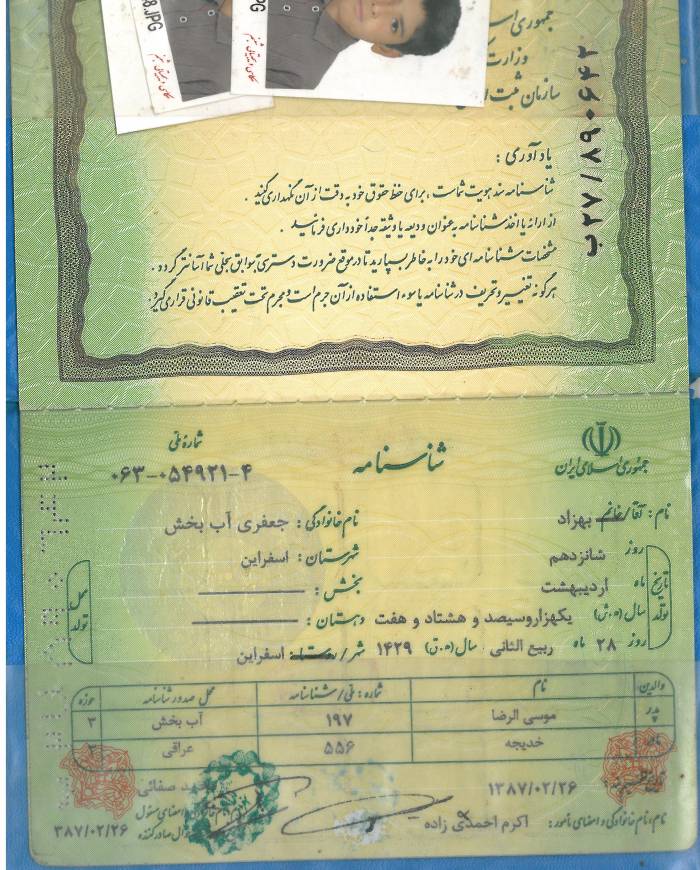 8.JPG
PG
عکاسی دیجیتالی
عکاسی دیجیتالی
جمهوری اس
وزارت ک
سازمان ثبت ا
ب ۲۷/۸۹۰۶۴۲
یادآوری :
شناسنامه سند هویت شماست ، برای حفظ حقوق خود به دقت از آن نگهداری کنید .
از ارائه یا اخذ شناسنامه به عنوان ودیعه یا وثیقه جداً خودداری فرمائید .
مشخصات شناسنامه ای خود را به خاطر بسپارید تا در موقع ضرورت دسترسی به سوابق سجلی شما آسانتر گردد .
هرگونه تغییر و تحریف در شناسنامه یا سوء استفاده از آن جرم است و مجرم تحت تعقیب قانونی قرار می گیرد .
جمهوری اسلامی ایران
شناسنامه
شماره ملی
۰۶۳-۰۵۴۹۲۱-۴
نام : آقا/خانم بهزاد
نام خانوادگی : جعفری آب بخش
تاریخ تولد
روز شانزدهم
ماه اردیبهشت
سال (ه.ش) یکهزاروسیصد و هشتاد و هفت
روز ۲۸ ماه ربیع الثانی سال (ه.ق) ۱۴۲۹
محل تولد
شهرستان : اسفراین
بخش :
دهستان :
شهر/روستا : اسفراین
والدین نام شماره ملی/شناسنامه محل صدور شناسنامه حوزه
پدر موسی الرضا ۱۹۷ آب بخش ۳
مادر خدیجه ۵۵۶ عراقی ۲
۱۳۸۷/۰۲/۲۶
نام، نام خانوادگی و امضای مأمور : اکرم احمدی زاده
صفائی
۳۸۷/۰۲/۲۶